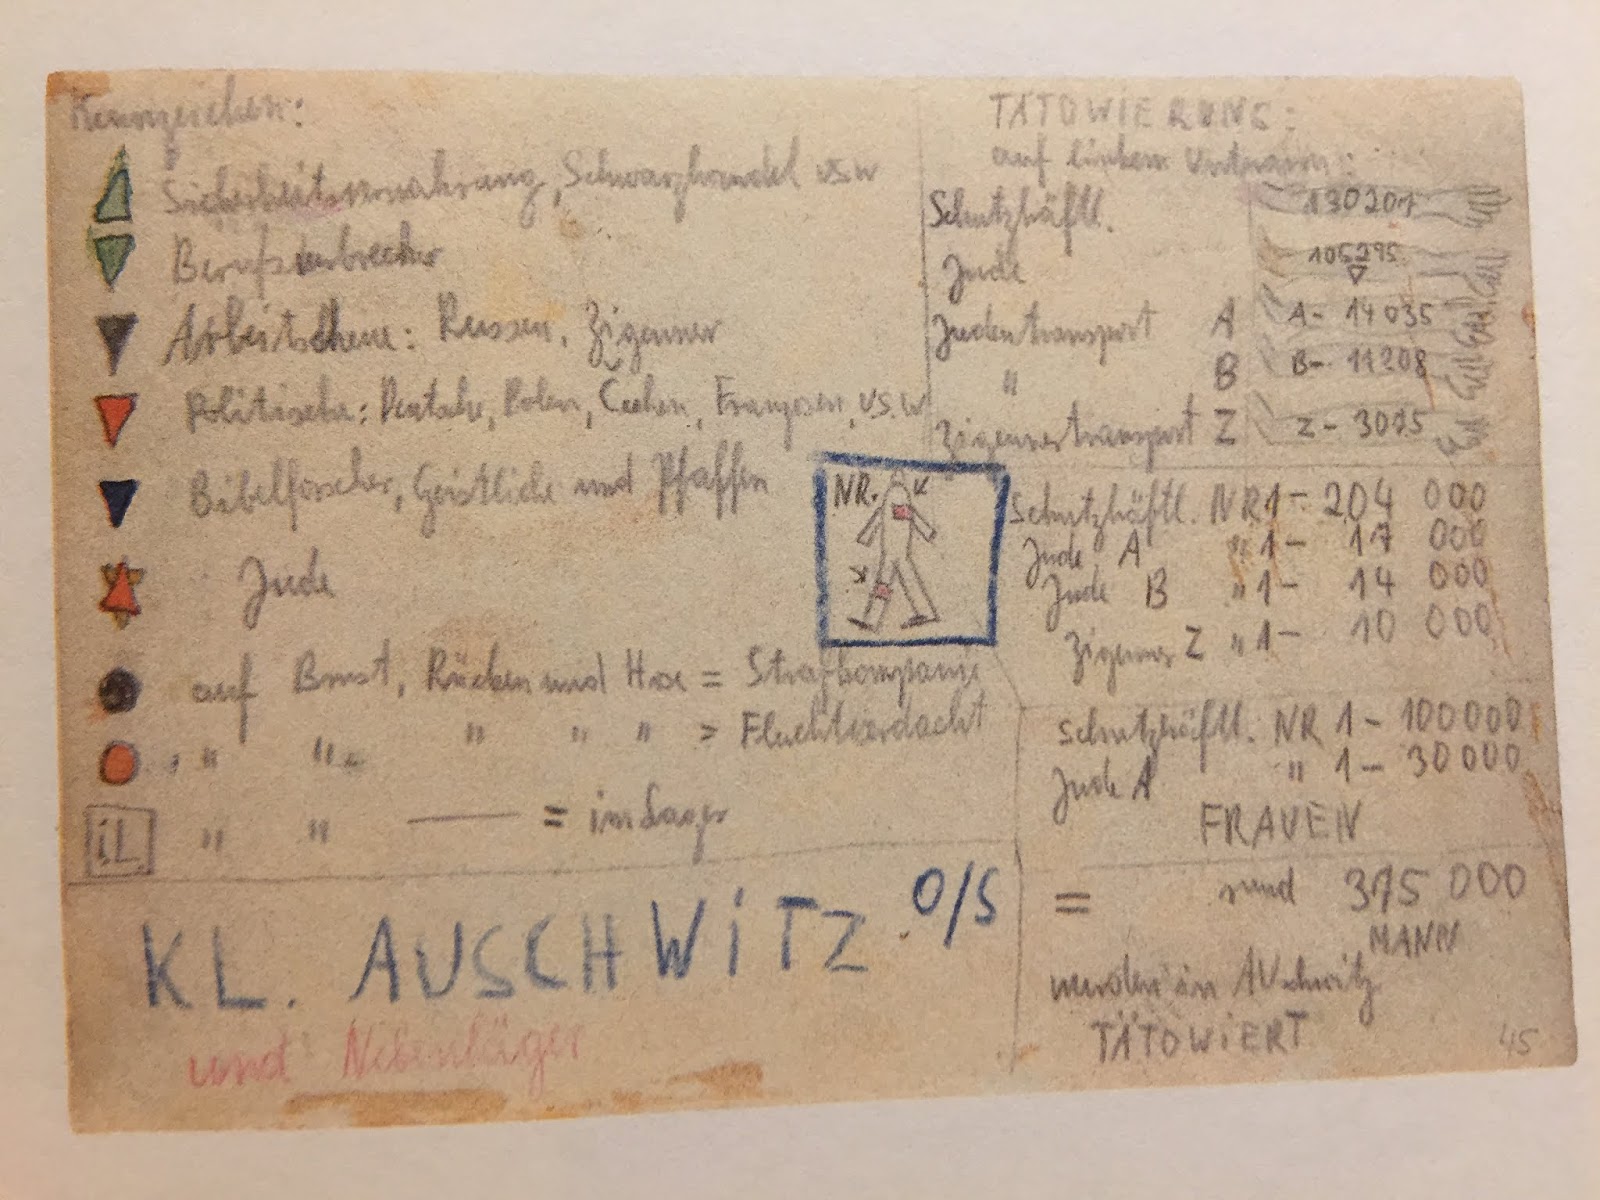 Kennzeichen:
Sicherheitsverwahrung, Schwarzhandel usw
Berufsverbrecher
Arbeitscheue: Russen, Zigeuner
Politische: Deutsche, Polen, Čechen, Franzosen, U.S.W
Bibelforscher, Geistliche und Pfaffen
Jude
auf Brust, Rücken und Hose = Strafkompanie
" " " " " = Fluchtverdacht
iL. " " —— = im Lager
KL. AUSCHWiTZ O/S
und Nebenläger
NR.
TÄTOWIERUNG:
auf linkem Unterarm:
Schutzhäftl. 130201
Jude 105295
Judentransport A A- 14035
" B B- 11208
Zigeunertransport Z Z- 3015
Schutzhäftl. NR 1- 204 000
Jude A " 1- 17 000
Jude B " 1- 14 000
Zigeuner Z " 1- 10 000
Schutzhäftl. NR 1- 100000
Jude A " 1- 30000
FRAUEN
= rund 375 000
MANN
wurden in AUschwitz
TÄTOWiERT
45